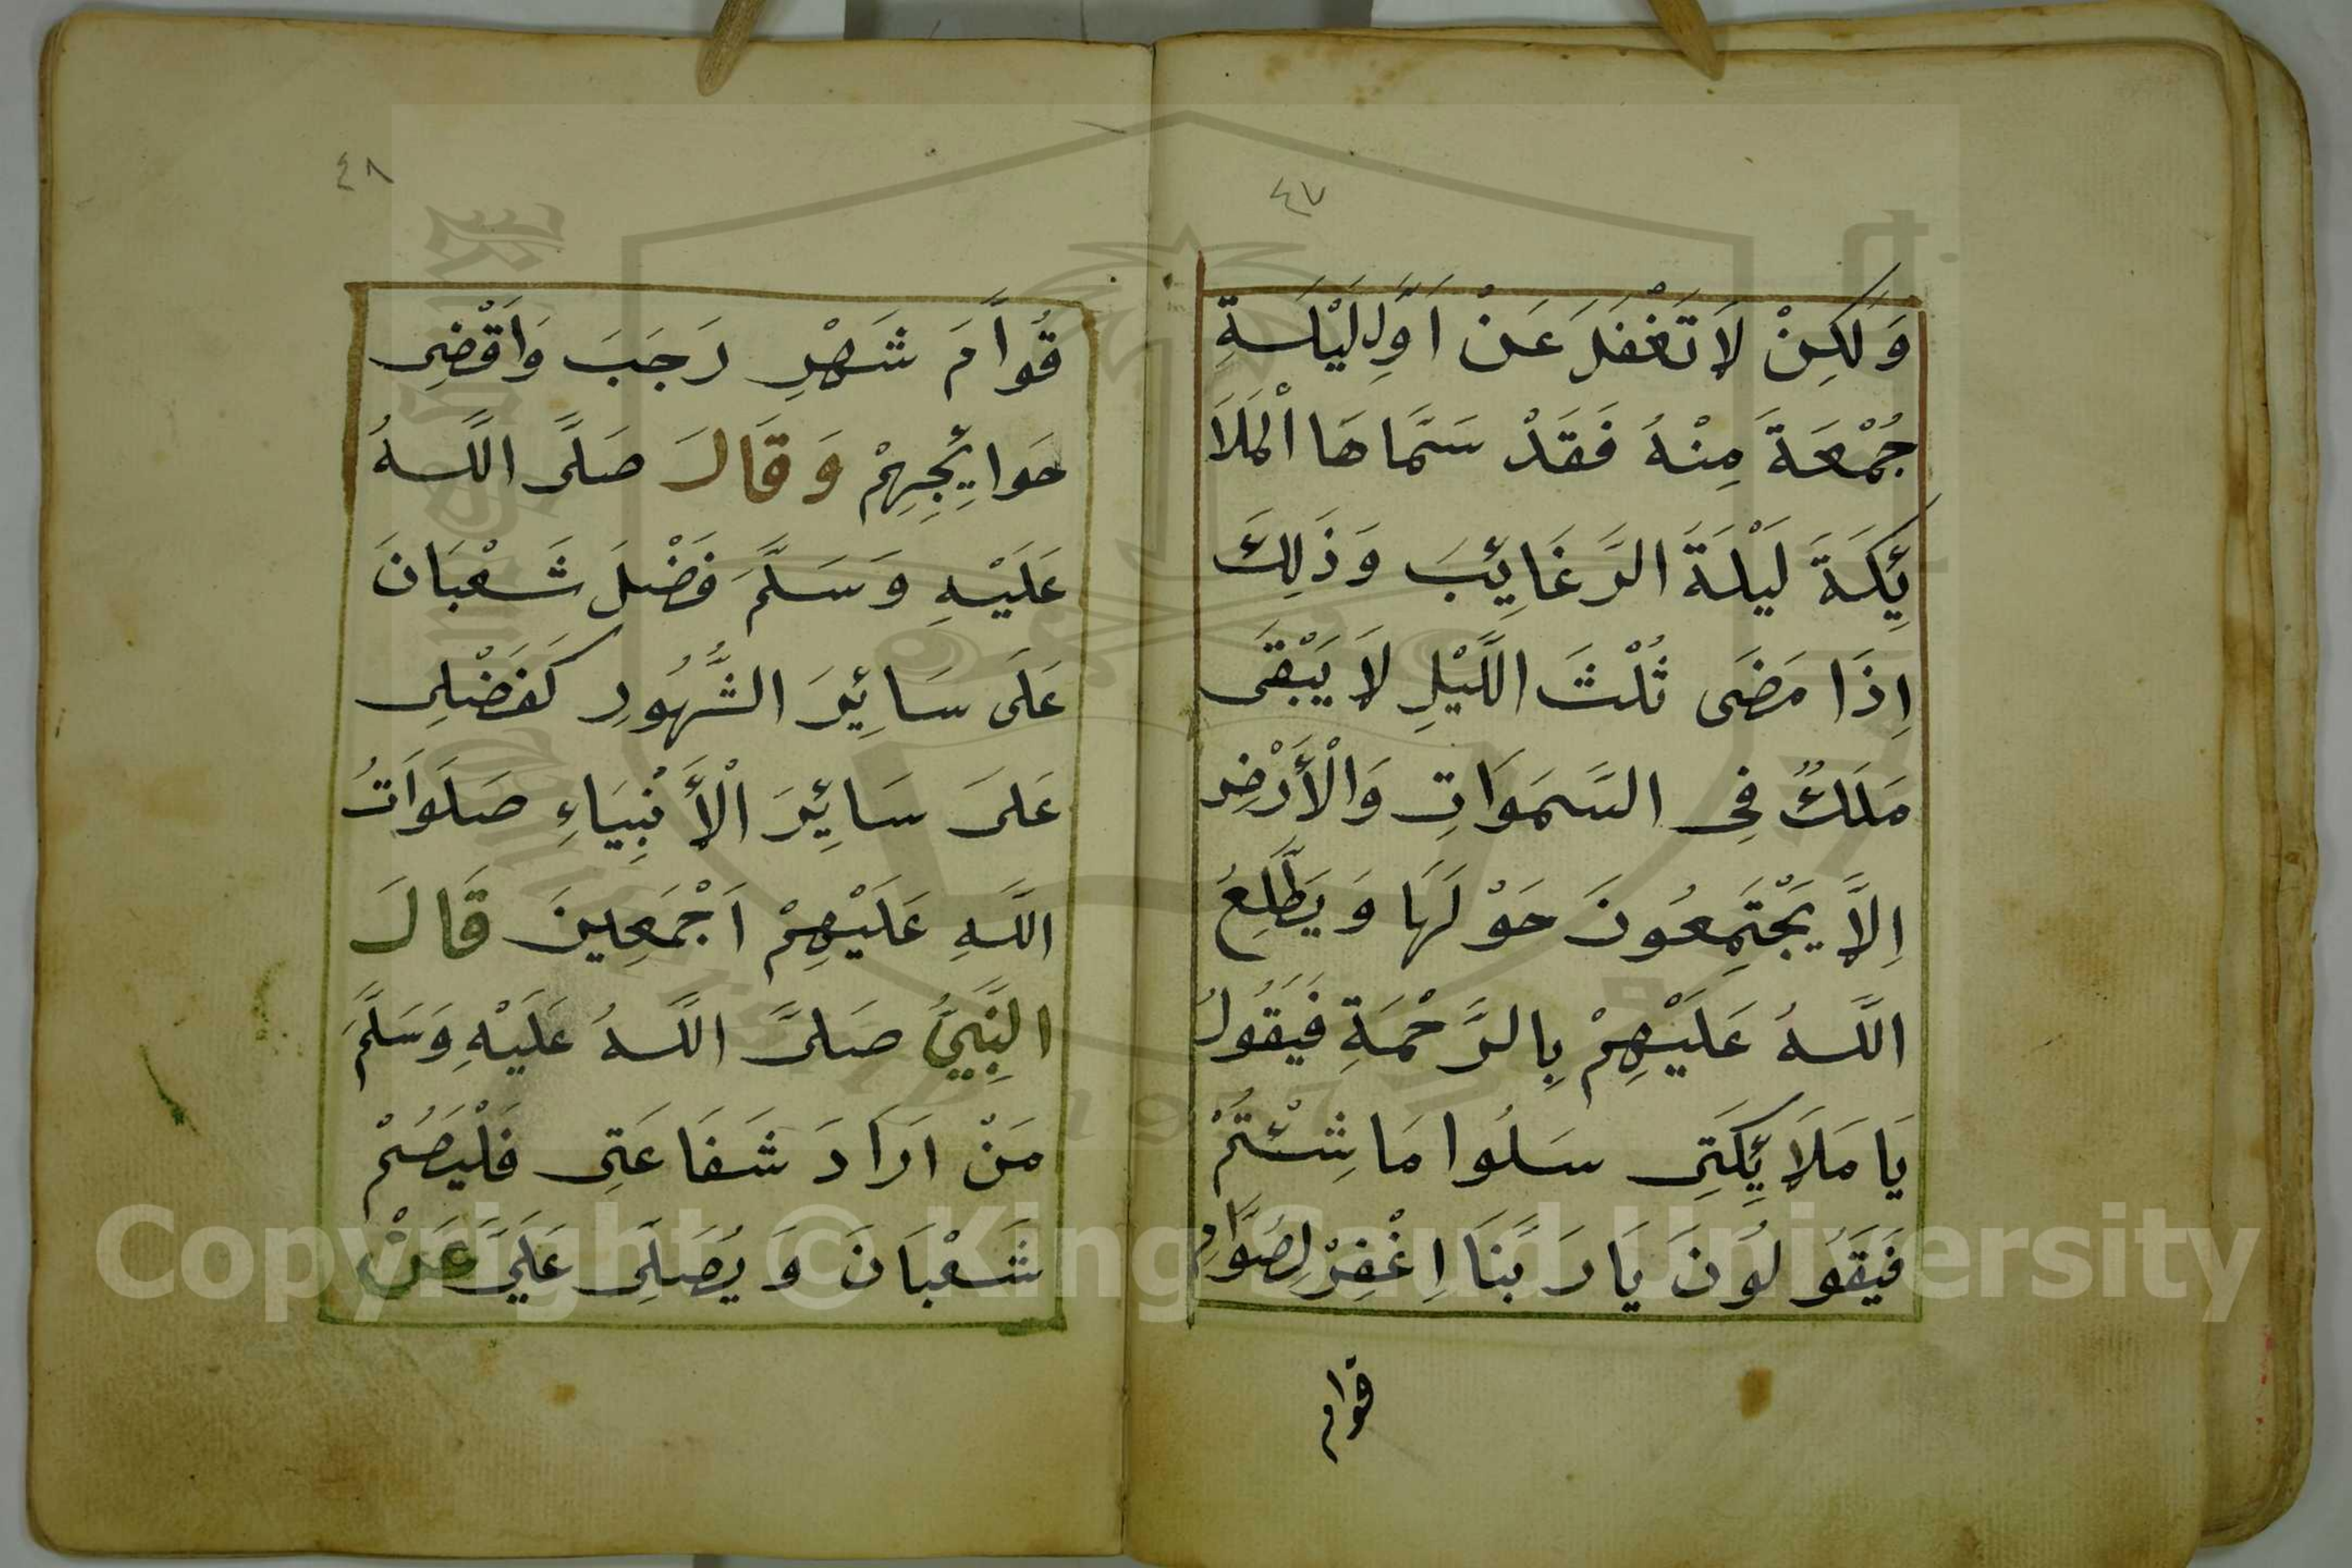 ٤٧
وَلَكِنْ لَا تَغْفَلَ عَنْ اَوَّلِ لَيْلَةِ
جُمْعَةَ مِنْهُ فَقَدْ سَمَّاهَا الْمَلَا
ئِكَةَ لَيْلَةَ الرَّغَائِبَ وَذَلِكَ
اِذَا مَضَى ثُلْثَ اللَّيْلِ لَا يَبْقَى
مَلَكٌ فِى السَّمَوَاتِ وَالْأَرْضِ
اِلَّا يَجْتَمِعُونَ حَوْلَهَا وَيَطَّلِعُ
اللَّهُ عَلَيْهِمْ بِالرَّحْمَةِ فَيَقُولُ
يَا مَلَائِكَتِى سَلُوا مَا شِئْتُمْ
فَيَقُولُونَ يَا رَبَّنَا اِغْفِرْ لِصُوَّامِ
قوام
٤٨
قُوَّامَ شَهْرِ رَجَبَ وَاَقْضِى
حَوَائِجِهِمْ وَقَالَ صَلَّى اللَّهُ
عَلَيْهِ وَسَلَّمَ فَضْلَ شَعْبَانَ
عَلَى سَائِرَ الشُّهُورِ كَفَضْلِى
عَلَى سَائِرَ الْأَنْبِيَاءِ صَلَوَاتُ
اللَّهِ عَلَيْهِمْ اَجْمَعِينَ قَالَ
النَّبِيُّ صَلَّى اللَّهُ عَلَيْهِ وَسَلَّمَ
مَنْ اَرَادَ شَفَاعَتِى فَلْيَصُمْ
شَعْبَانَ وَيُصَلِّى عَلَيَّ عَنْ
Copyright © King Saud University